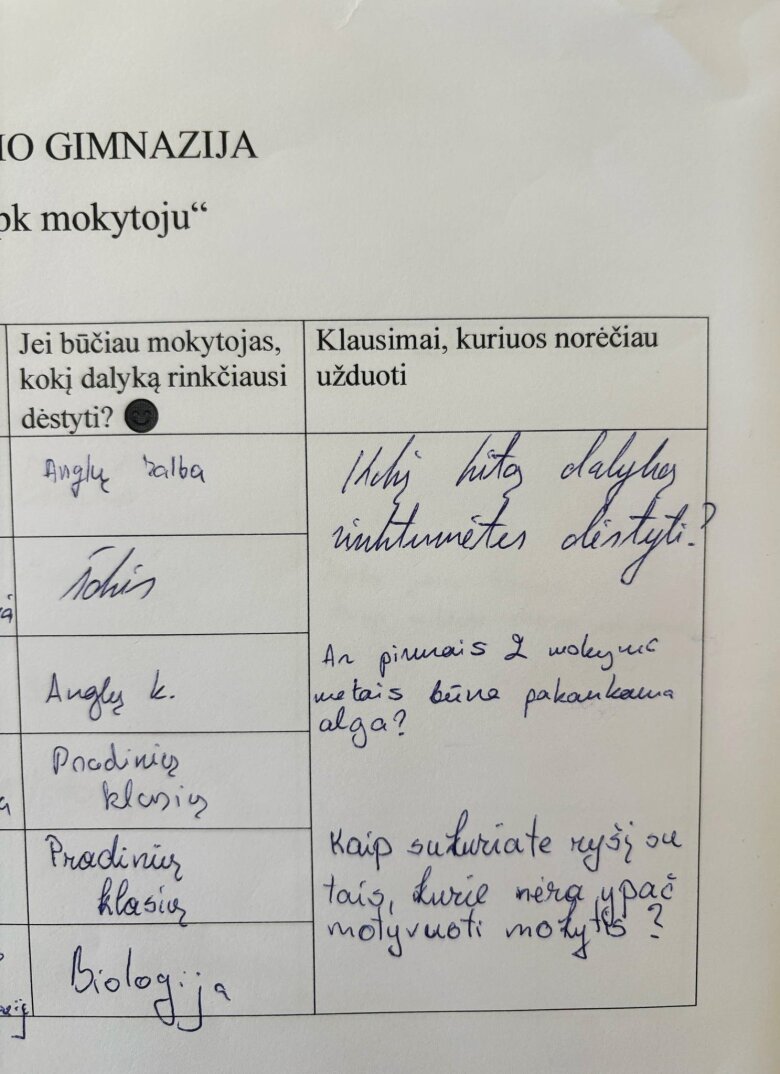 IO GIMNAZIJA
pk mokytoju“
Jei būčiau mokytojas,
kokį dalyką rinkčiausi
dėstyti?
Klausimai, kuriuos norėčiau
užduoti
Anglų kalba
Šokis
Anglų k.
Pradinių
klasių
Pradinių
klasių
Biologija
Kokį kitą dalyką
rinktumėtės dėstyti?
Ar pirmais 2 mokymo
metais būna pakankama
alga?
Kaip sukuriate ryšį su
tais, kurie nėra ypač
motyvuoti mokytis?